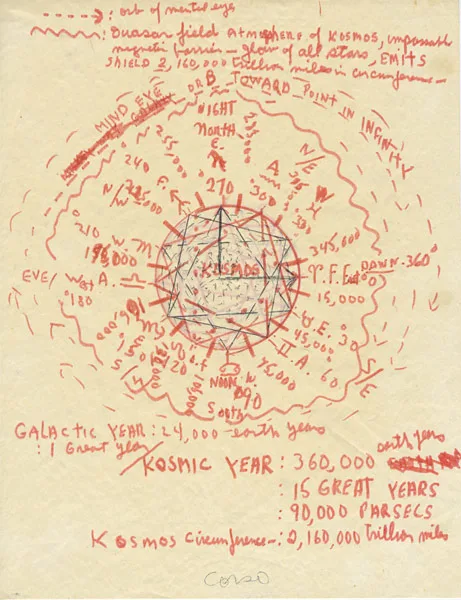 : orb of mental eye
: Quasar field atmosphere of KOSMOS, impassable
magnetic barrier - glow of all stars, EMITS
SHIELD 2,160,000 trillion miles in circumference -
MIND EYE ORB TOWARD POINT IN INFINITY
NIGHT
North
255,000
E.
270
A
300
N/E
240
225,000
N/W
210
W.
195,000
EVE/ West
A.
180
KOSMOS
345,000
F.
East
DAWN - 360°
0
15,000
E.
30
45,000
A. 60
75,000
S/E
120
NOON
W.
90
South
GALACTIC YEAR : 24,000 earth years
: 1 Great Year
KOSMIC YEAR : 360,000 earth years
: 15 GREAT YEARS
: 90,000 PARSECS
KOSMOS circumference - : 2,160,000 trillion miles
Corso